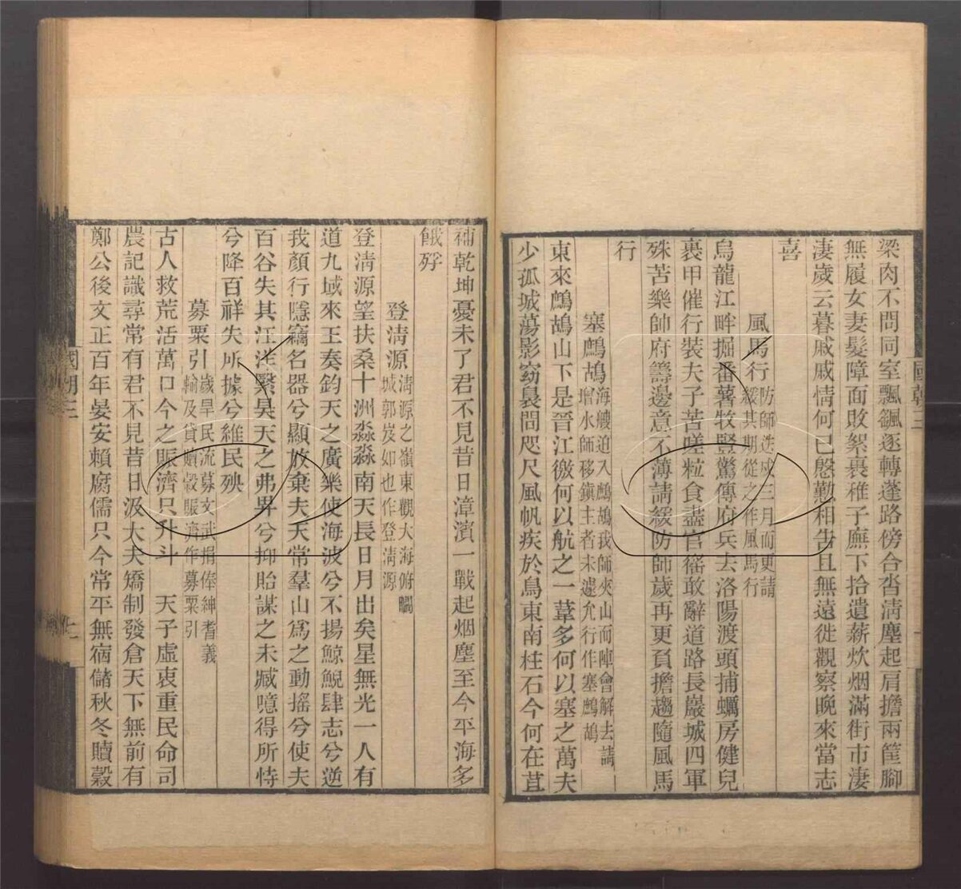 梁肉不問同室飄飖逐轉蓬路傍合沓清塵起肩擔兩筐腳
無履女妻髮障面敗絮裹稚子廡下拾遺薪炊烟滿街市淒
淒歲云暮戚戚情何已慇勤相告且無遠徙觀察晚來當志
喜
風馬行
防師迭戍三月而更請
緩其期從之作風馬行
烏龍江畔掘番薯牧豎驚傳府兵去洛陽渡頭捕蠣房健兒
裹甲催行裝夫子苦嗟粒食盡官徭敢辭道路長嚴城四軍
殊苦樂帥府籌邊意不薄請緩防師歲再更負擔趨隨風馬
行
塞鷓鴣
海艘迫入鷓鴣我師夾山而陣會解去請
增水師移鎮主者未遽允行作塞鷓鴣
東來鷓鴣山下是晉江徼何以航之一葦多何以塞之萬夫
少孤城蕩影窈裊間咫尺風帆疾於鳥東南柱石今何在苴
國朝三
補乾坤憂未了君不見昔日漳濱一戰起烟塵至今平海多
餓殍
登清源
清源之嶺東觀大海俯矚
城郭岌如也作登清源
登清源望扶桑十洲淼淼南天長日月出矣星無光一人有
道九域來王奏鈞天之廣樂使海波兮不揚鯨鯢肆志兮逆
我顏行隱竊名器兮顯放棄夫天常羣山爲之動搖兮使夫
百谷失其汪洋繄昊天之弗畀兮抑貽謀之未臧噫得所恃
兮降百祥失所據兮維民殃
募粟引
歲旱民流募文武捐俸紳耆義
輸及貸贖穀賑濟作募粟引
古人救荒活萬口今之賑濟只升斗　天子虛衷重民命司
農記識尋常有君不見昔日汲大夫矯制發倉天下無前有
鄭公後文正百年晏安賴腐儒只今常平無宿儲秋冬贖穀
國朝三